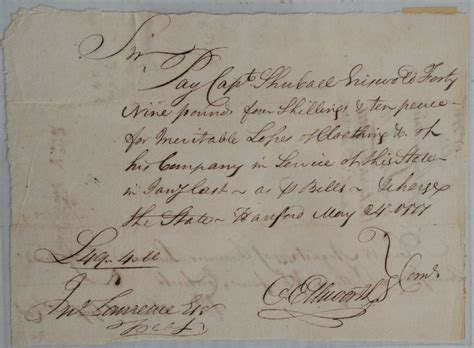 Sir
Pay Capt Shubael Griswold Forty
Nine pounds four Shillings & ten pence
for Inevitable Losses of Cloathing &c of
his Company in Service of this State
in Jany Last – as p Bill – & charge
the State – Hartford May 24 1777
£49.4.10
Jno Lawrence Esqr
Treasr
O Ellsworth Comt